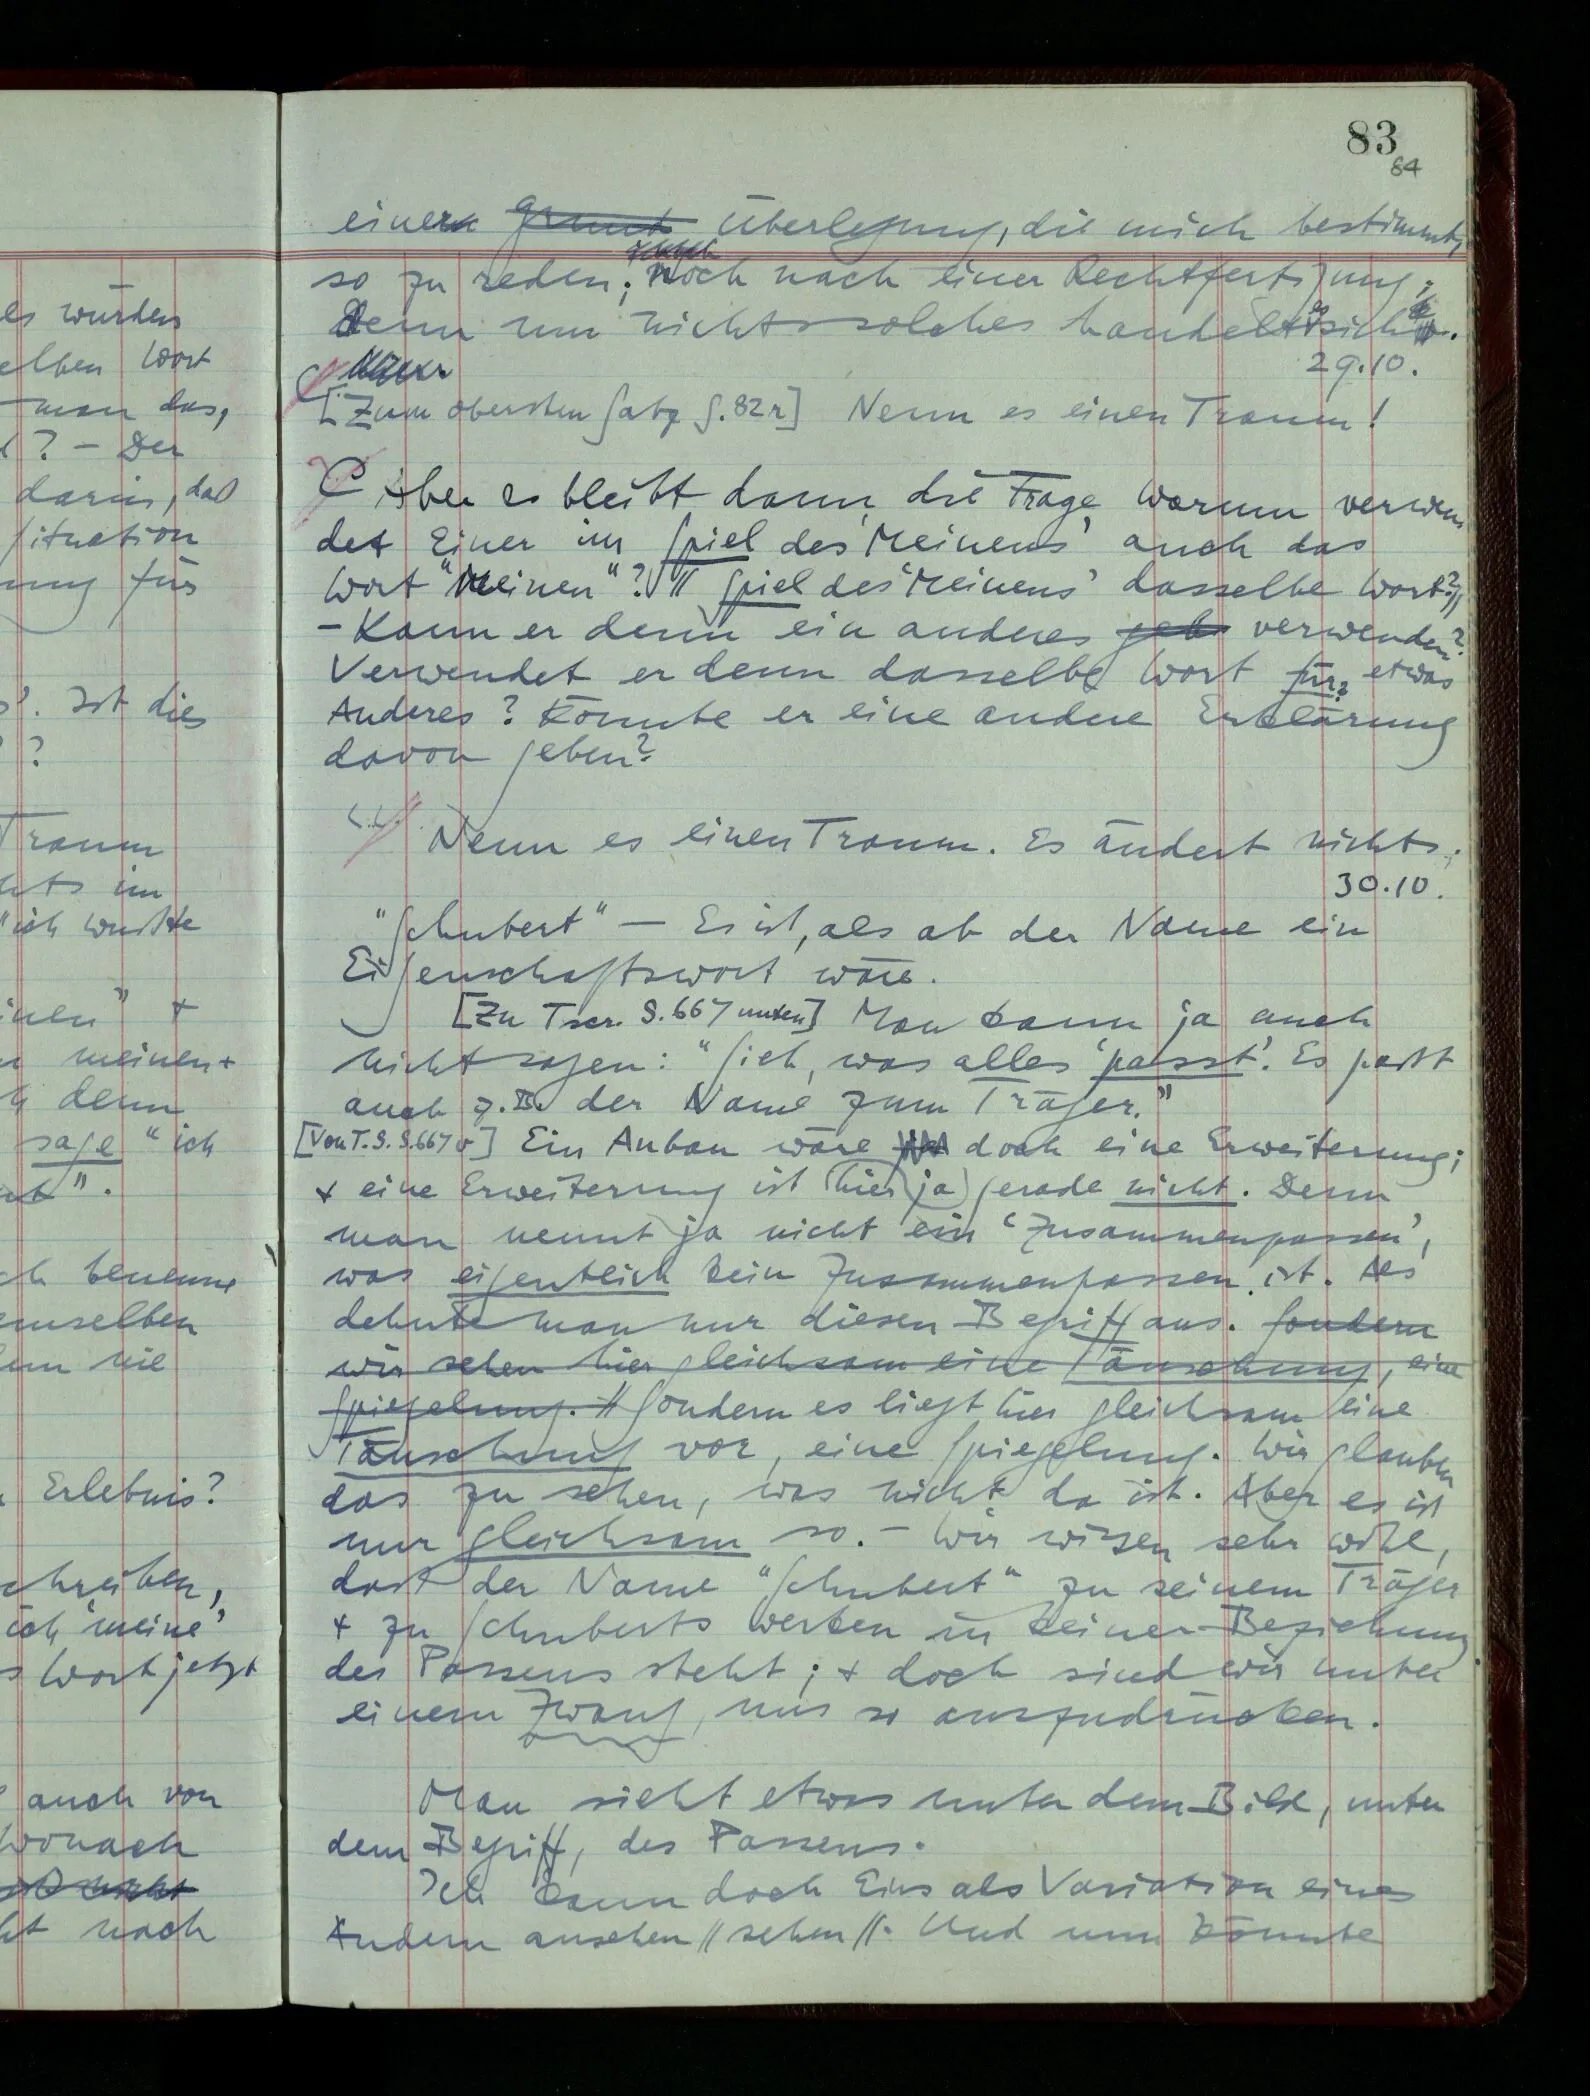 83
84
einer Grund Überlegung, die mich bestimmt,
so zu reden; noch nach einer Rechtfertigung;
denn um nichts solches handelt es sich.
29.10.
[Zum obersten Satz S. 82r] Nenn es einen Traum!
Aber es bleibt dann die Frage, warum verwen
det Einer im Spiel des 'Meinens' auch das
Wort "Meinen"? // Spiel des 'Meinens' dasselbe Wort? //
– Kann er denn ein anderes geb verwenden?
Verwendet er denn dasselbe Wort für etwas
Anderes? Könnte er eine andere Erklärung
davon geben?
Nenn es einen Traum. Es ändert nichts.
30.10.
"Schubert" – Es ist, als ob der Name ein
Eigenschaftswort wäre.
[Zu Tscr. S. 667 unten] Man kann ja auch
nicht sagen: "Sieh, was alles 'passt'. Es passt
auch z.B. der Name zum Träger."
[Von T.S. S. 667 v] Ein Anbau wäre doch eine Erweiterung;
+ eine Erweiterung ist hier (ja) gerade nicht. Denn
man nennt ja nicht ein 'Zusammenpassen',
was eigentlich kein Zusammenpassen ist. Als
dehnte man nur diesen Begriff aus. Sondern
wir sehen hier gleichsam eine Täuschung, eine
Spiegelung. // Sondern es liegt hier gleichsam eine
Täuschung vor, eine Spiegelung. Wir glauben
das zu sehen, was nicht da ist. Aber es ist
nur gleichsam so. – Wir wissen sehr wohl,
daß der Name "Schubert" zu seinem Träger
+ zu Schuberts Werken in keiner Beziehung
des Passens steht; + doch sind wir unter
einem Zwang, uns so auszudrücken.
Man sieht etwas unter dem Bild, unter
dem Begriff, des Passens.
Ich kann doch Eins als Variation eines
Andern ansehen // sehen //. Und nun könnte
es würden
elben Wort
man das,
? – Der
darin, daß
Situation
ung für
'. Ist dies
?
Traum
hts im
"ich wußte
inen" +
meinen +
denn
sage "ich
".
ch benenne
emselben
nie
Erlebnis?
chreiben,
ich 'meine'
Wort jetzt
auch von
Wonach
nicht
ht nach